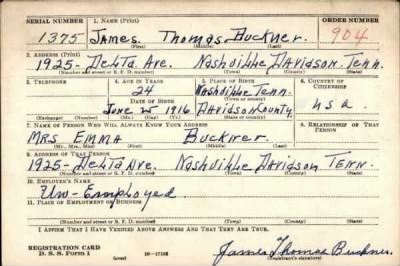 SERIAL NUMBER 1. NAME (Print) ORDER NUMBER
1375 James Thomas Buckner. 904
(First) (Middle) (Last)
2. ADDRESS (Print)
1925- Delta Ave. Nashville Davidson. Tenn.
(Number and street or R. F. D. number) (Town) (County) (State)
3. TELEPHONE 4. AGE IN YEARS 5. PLACE OF BIRTH 6. COUNTRY OF CITIZENSHIP
24 Nashville Tenn.
(Town or county)
DATE OF BIRTH
June 25 1916 Davidson County U.S.A.
(Exchange) (Number) (Mo.) (Day) (Yr.) (State or country)
7. NAME OF PERSON WHO WILL ALWAYS KNOW YOUR ADDRESS 8. RELATIONSHIP OF THAT PERSON
Mrs Emma Buckner.
(Mr., Mrs., Miss) (First) (Middle) (Last)
9. ADDRESS OF THAT PERSON
1925- Delta Ave. Nashville Davidson Tenn.
(Number and street or R. F. D. number) (Town) (County) (State)
10. EMPLOYER'S NAME
Un-Employed
11. PLACE OF EMPLOYMENT OR BUSINESS
(Number and street or R. F. D. number) (Town) (County) (State)
I AFFIRM THAT I HAVE VERIFIED ABOVE ANSWERS AND THAT THEY ARE TRUE.
REGISTRATION CARD
D. S. S. Form 1 (over) 16-17105 James Thomas Buckner.
(Registrant's signature)